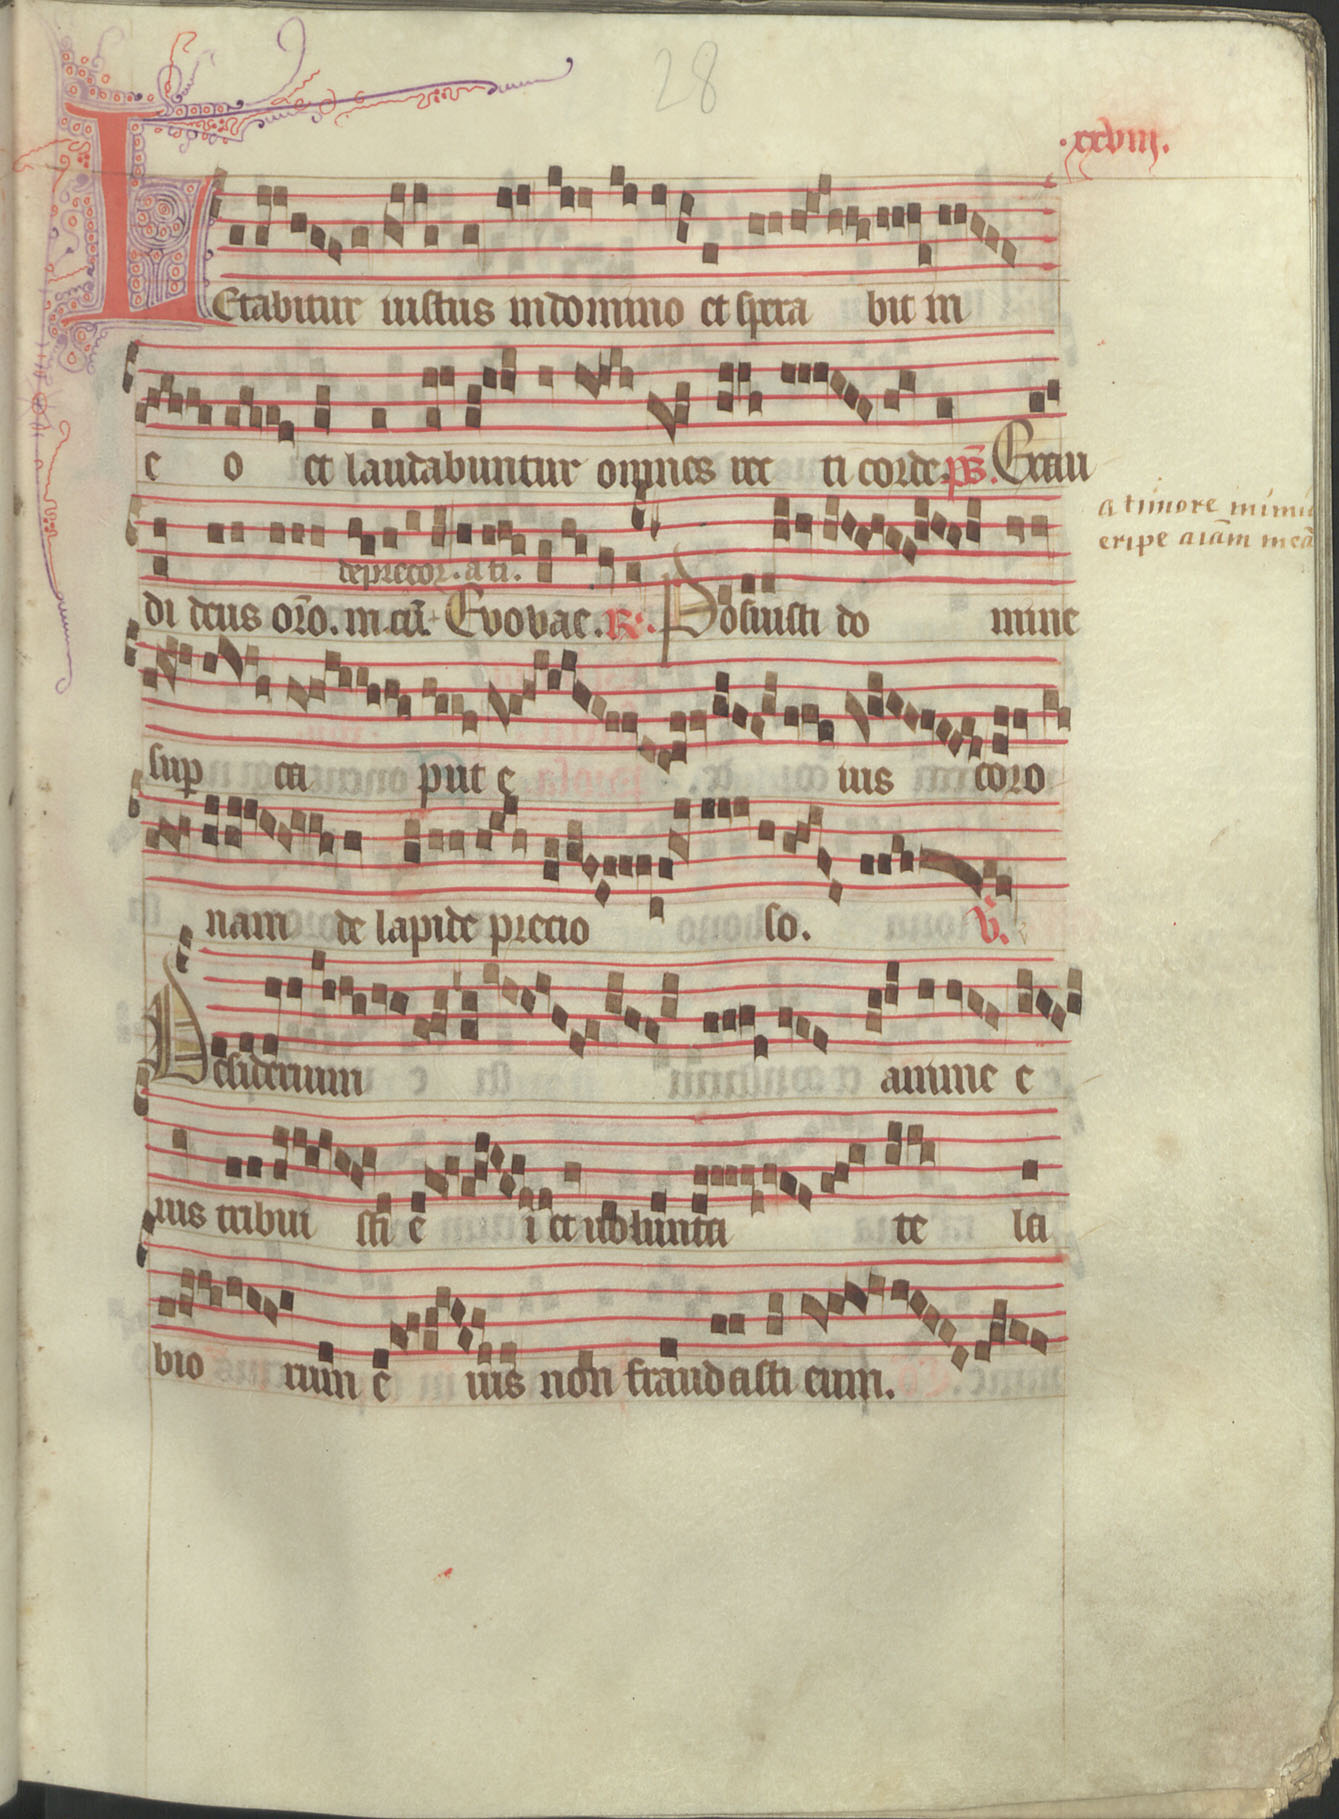 28
.xxviii.
LEtabitur iustus in domino et spera bit in
e o et laudabuntur omnes rec ti corde. ps. Exau
a timore inimici
eripe aīam meā
deprecor. a ti.
di deus oro. m. cū. Evovae. R. Posuisti do mine
sup ca put e ius coro
nam de lapide precio so. V.
Desiderium anime e
ius tribui sti e i et uolunta te la
bio rum e ius non fraudasti eum.